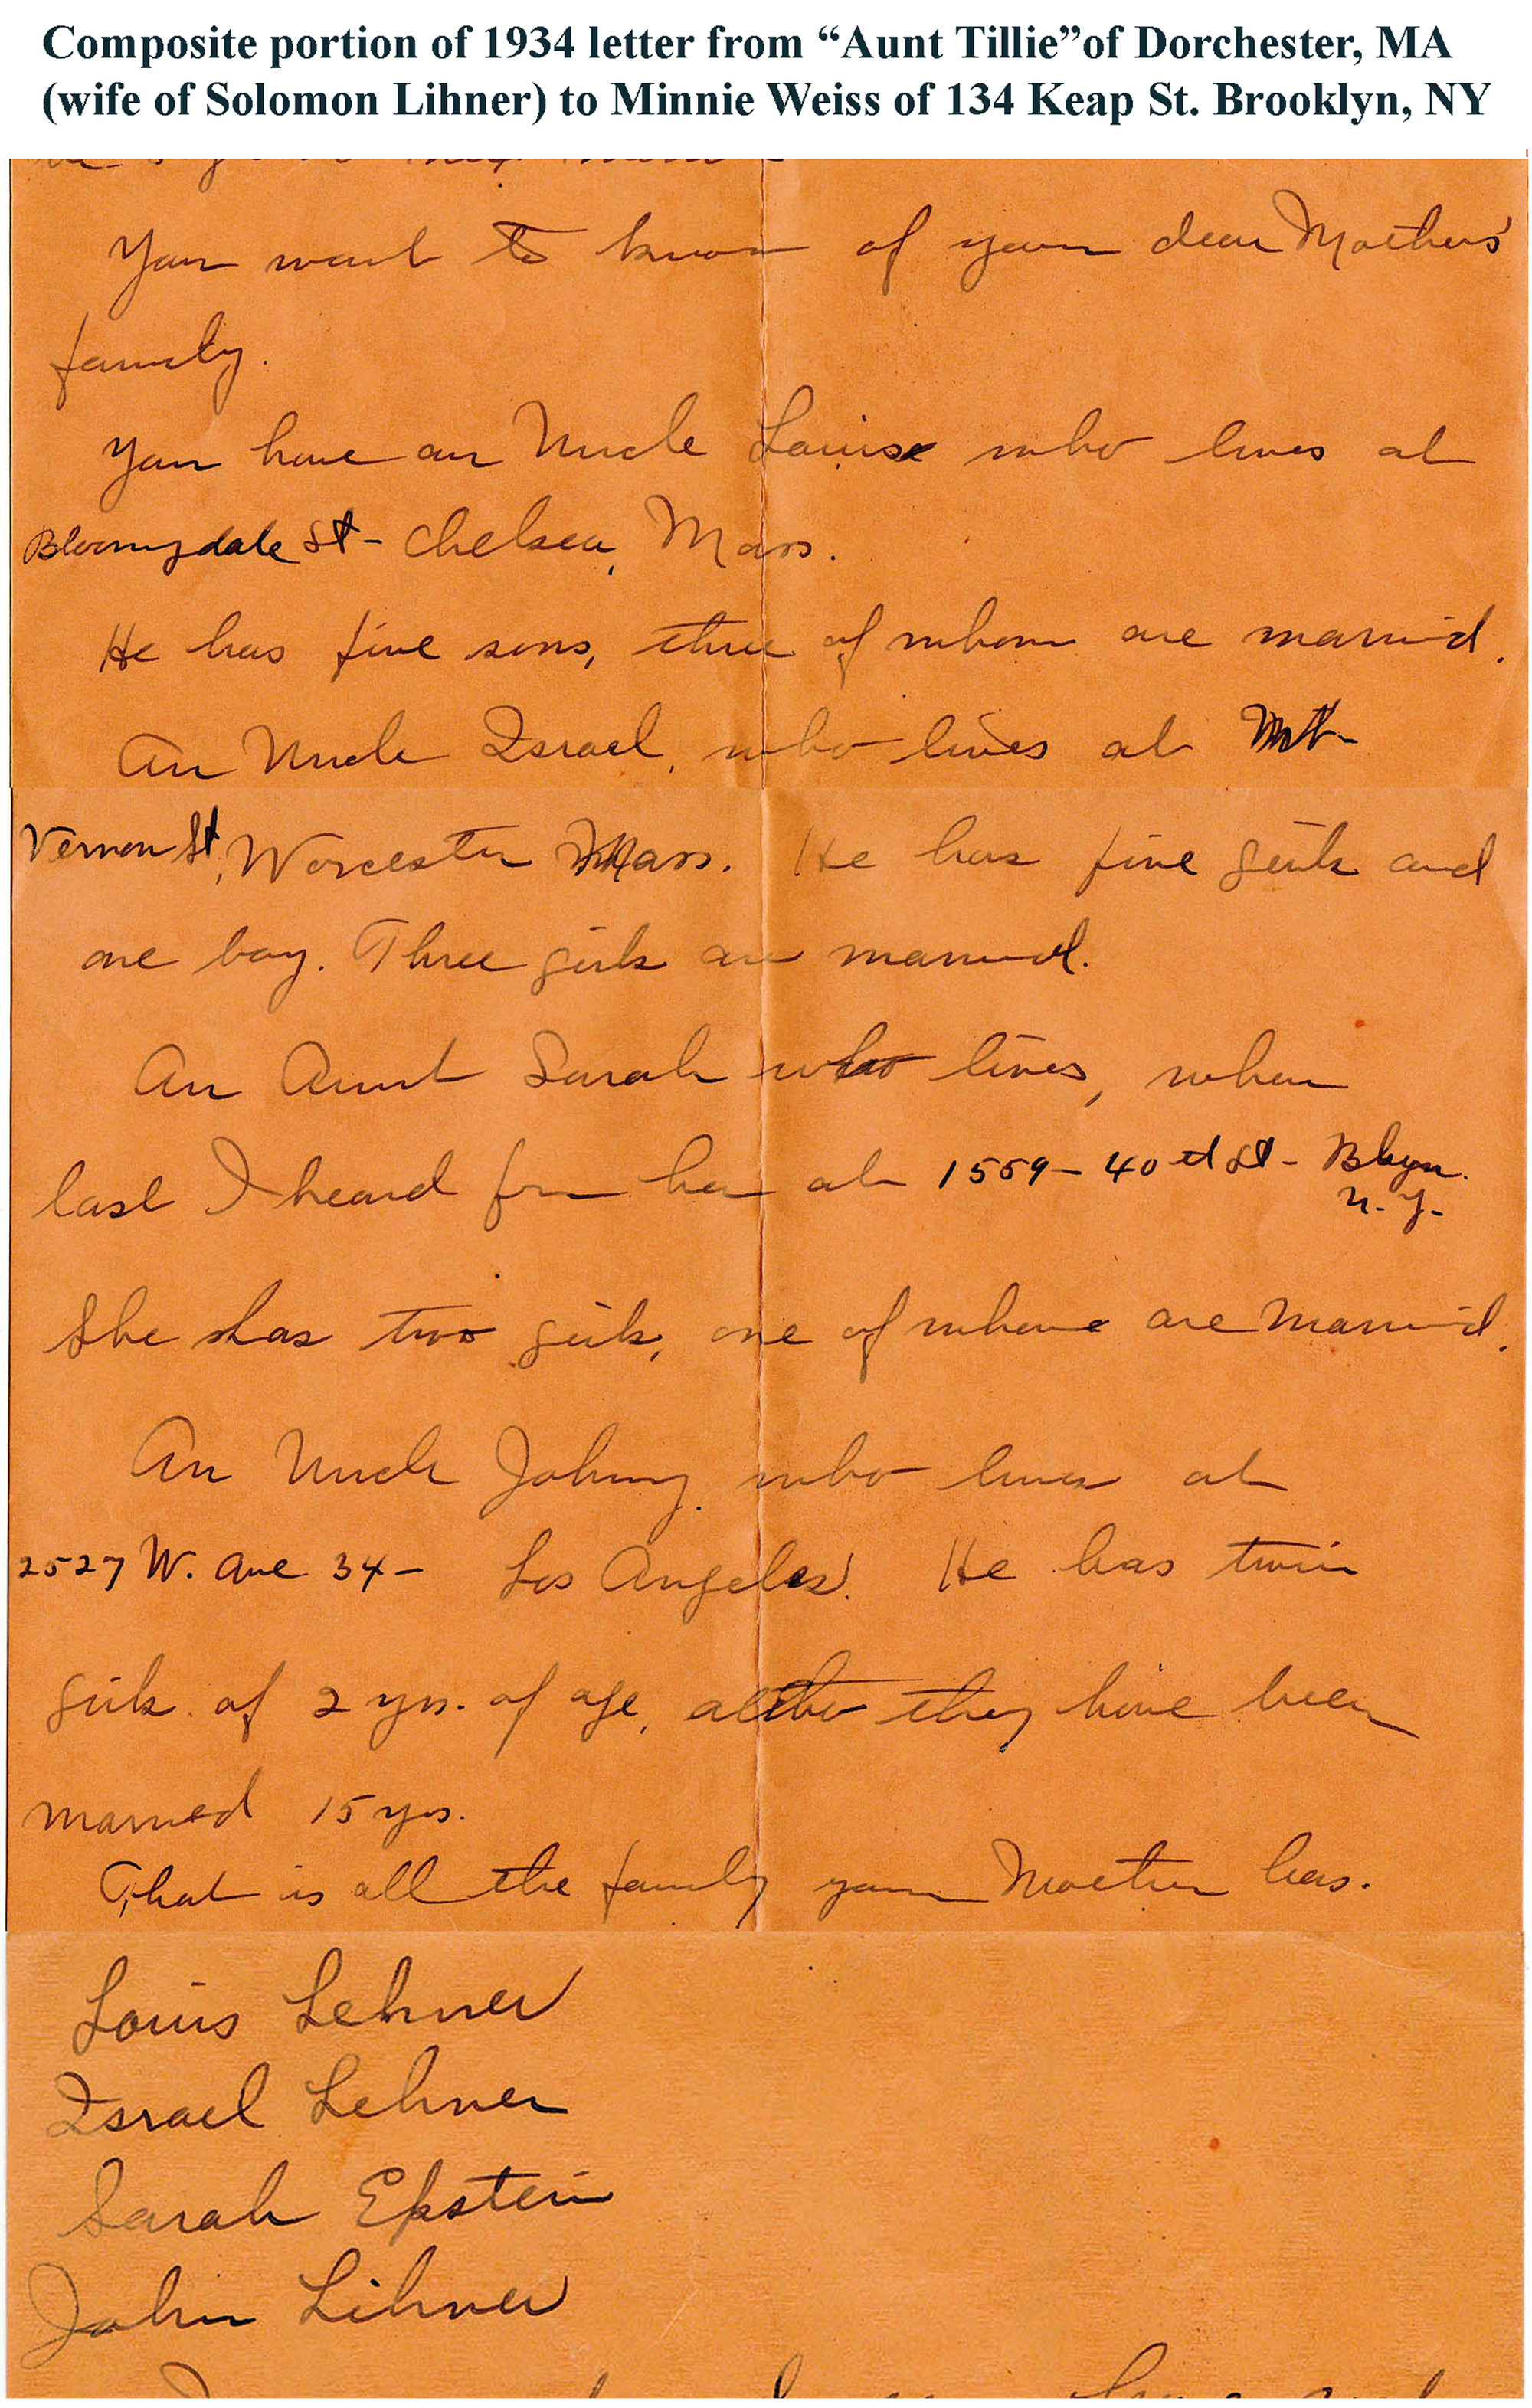 Composite portion of 1934 letter from “Aunt Tillie”of Dorchester, MA
(wife of Solomon Lihner) to Minnie Weiss of 134 Keap St. Brooklyn, NY
You want to know of your dear Mothers'
family.
You have an Uncle Louise who lives at
Bloomgdale St - Chelsea, Mass.
He has five sons, three of whom are married.
An Uncle Israel, who lives at Mt-
Vernon St, Worcester Mass. He has five girls and
one boy. Three girls are married.
An Aunt Sarah who lives, when
last I heard from her at 1559 - 40th St - Bkyn.
N.Y.
She has two girls, one of whom are married.
An Uncle Johny who lives at
2527 W. Ave 34 - Los Angeles. He has twin
girls of 2 yrs. of age, altho they have been
married 15 yrs.
That is all the family your Mother has.
Louis Lehner
Israel Lehner
Sarah Epstein
John Lihner